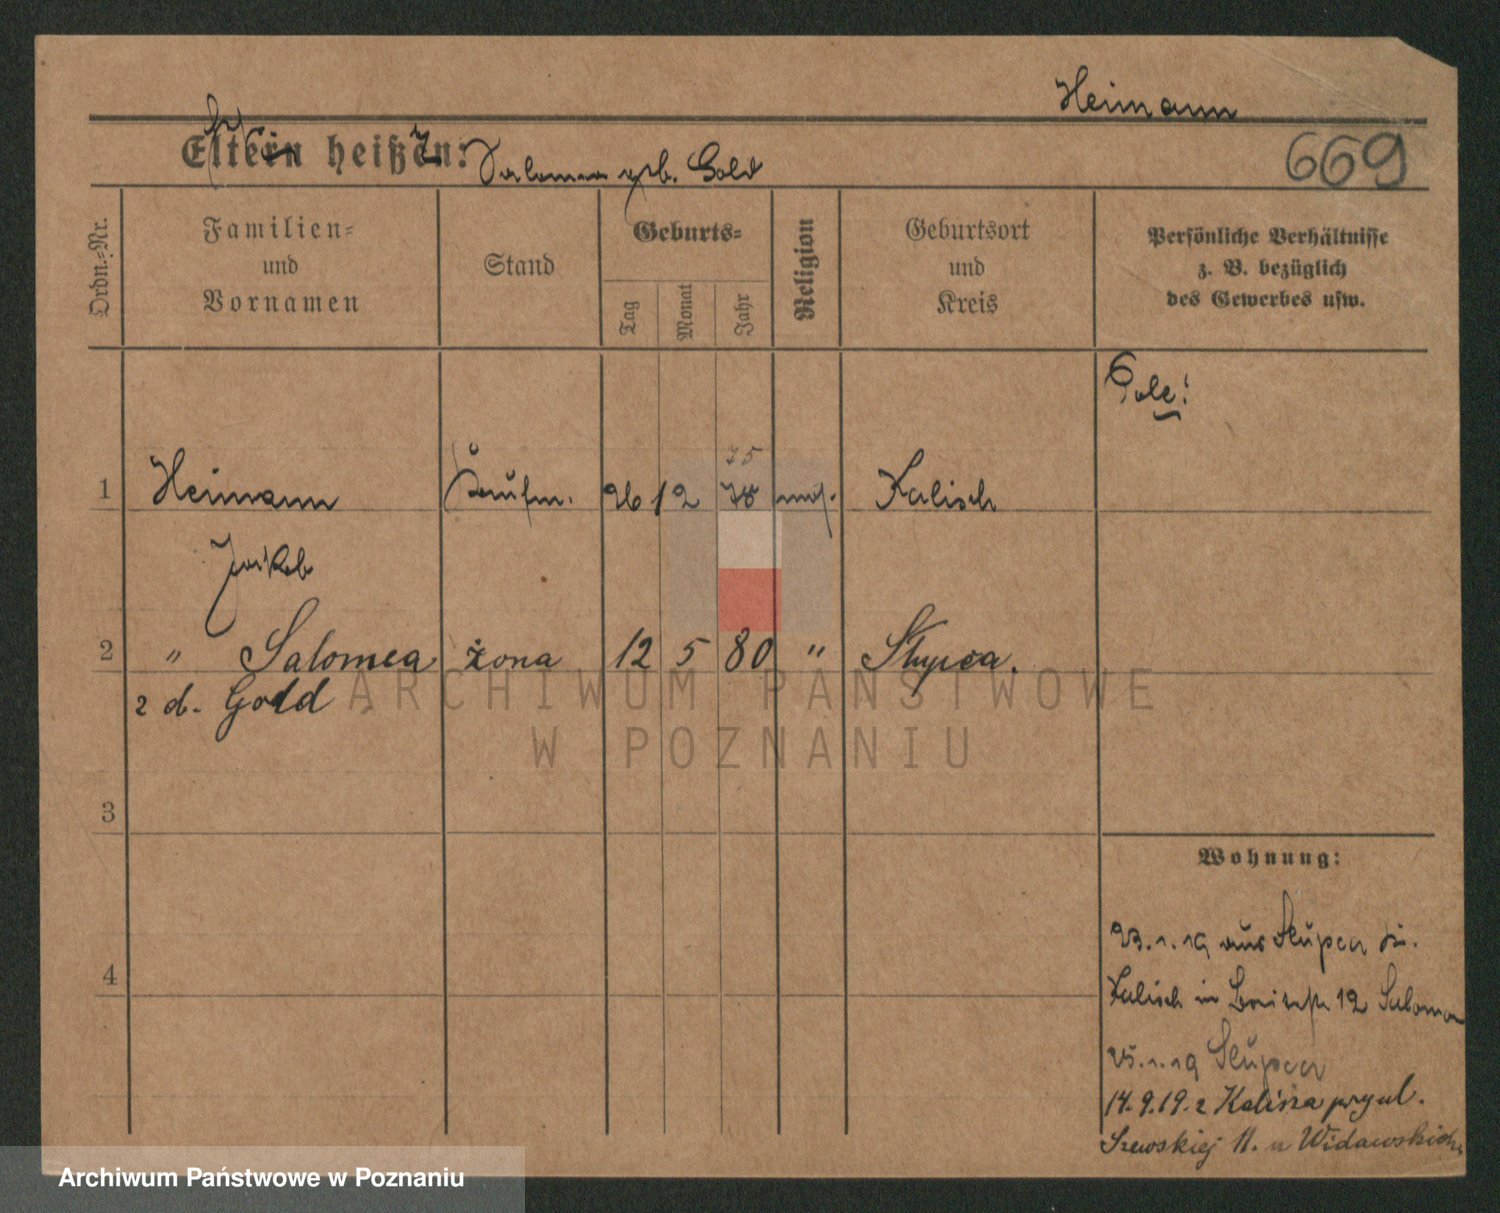 Heimann
669
Eltern heißen: Salomea geb. Gold
Ordn.-Nr.
Familien-
und
Vornamen
Stand
Geburts-
Tag
Monat
Jahr
Religion
Geburtsort
und
Kreis
Persönliche Verhältnisse
z. B. bezüglich
des Gewerbes usw.
Pole!
75
1 Heimann Kaufm. 26 12 78 mos. Kalisch
Jakob
2 " Salomea żona 12 5 80 " Słupca.
z d. Gold
ARCHIWUM PAŃSTWOWE
W POZNANIU
3
4
Wohnung:
23.1.19 aus Slupca
Kalisch in 12 Saloma
25.1.19 Slupca
14.9.19. z Kalisza przy ul.
Szewskiej 11. u Widawskich
Archiwum Państwowe w Poznaniu